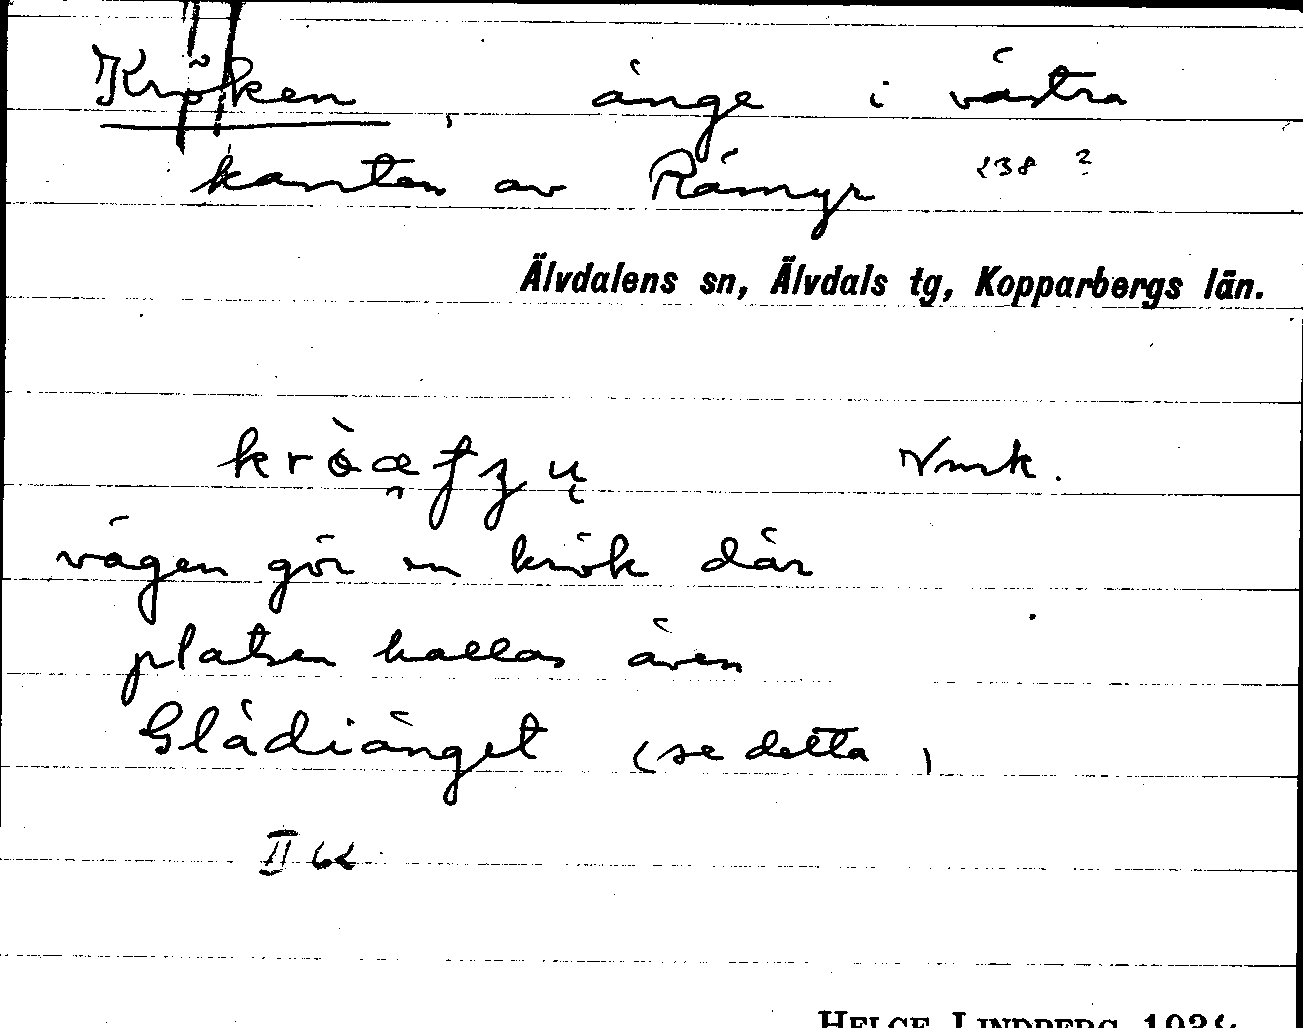 Kröken, änge i västra
kanten av Råmyr 238 ?
Älvdalens sn, Älvdals tg, Kopparbergs län.
vägen gör en krök där
platsen kallas även
Glådiänget (se detta)
II 62
HELGE LINDBERG